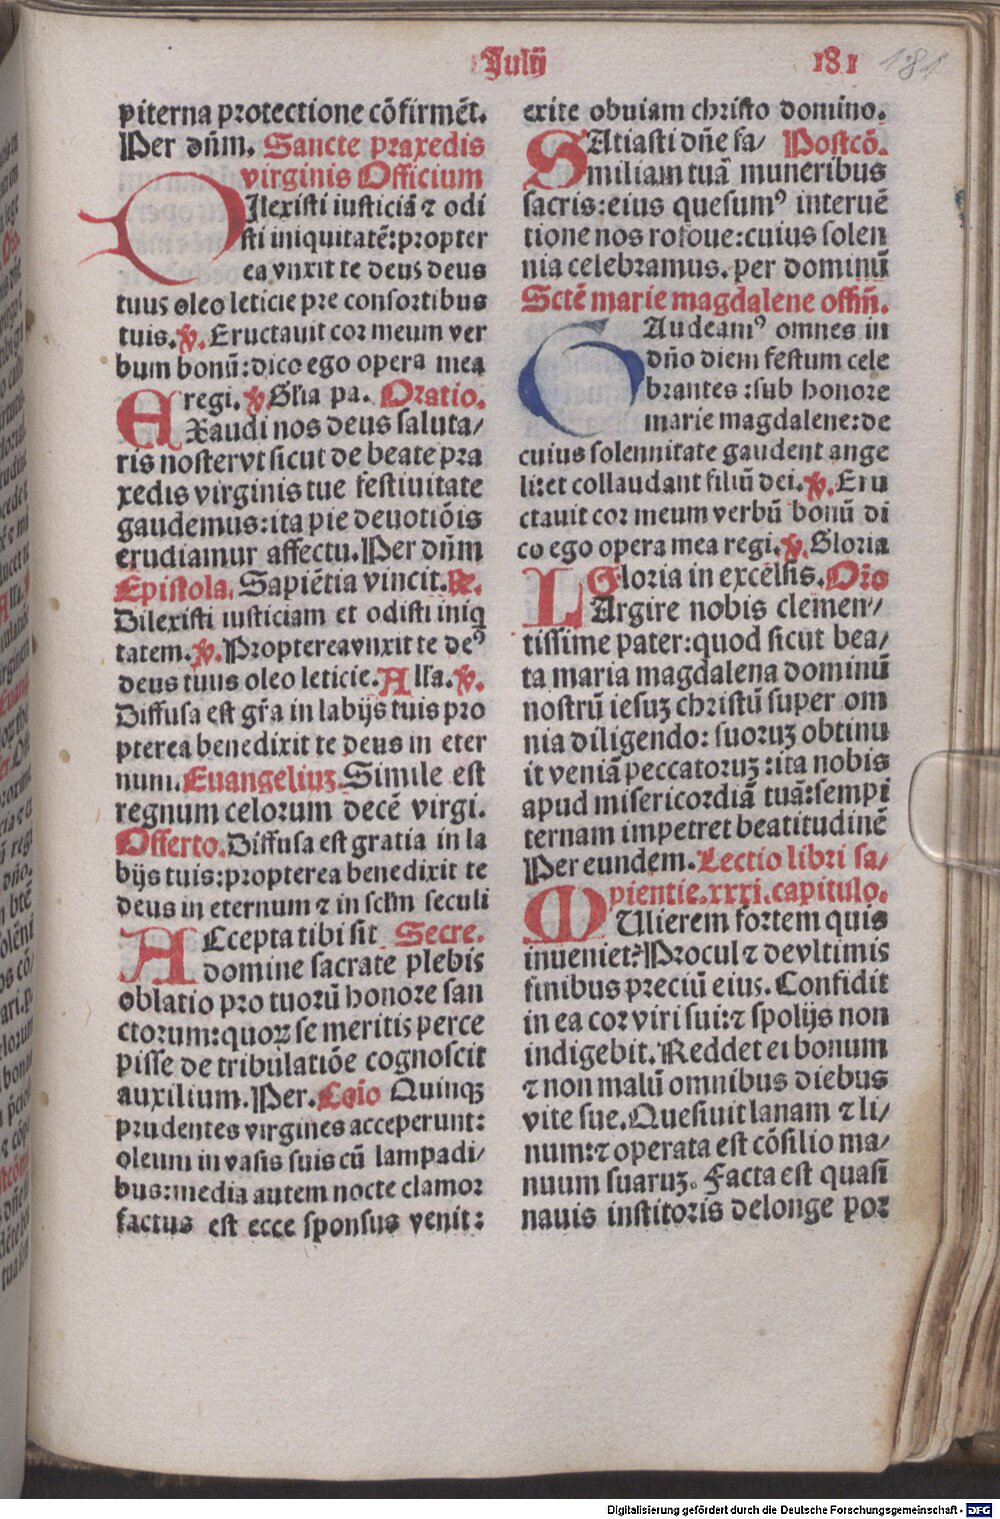 Julij
181
181
piterna protectione cōfirmēt.
Per dn̄m. Sancte praxedis
virginis Officium
DIlexisti iusticiā ⁊ odi
sti iniquitatē: propter
ea vnxit te deus deus
tuus oleo leticie pre consortibus
tuis. v̷. Eructauit cor meum ver
bum bonū: dico ego opera mea
regi. v̷ Gl̄ia pa. Oratio.
EXaudi nos deus saluta/
ris noster vt sicut de beate pra
xedis virginis tue festiuitate
gaudemus: ita pie deuotiōis
erudiamur affectu. Per dn̄m
Epistola. Sapiētia vincit. R̷.
Dilexisti iusticiam et odisti iniq
tatem. v̷. Propterea vnxit te deꝰ
deus tuus oleo leticie. All'a. v̷.
Diffusa est gr̄a in labijs tuis pro
pterea benedixit te deus in eter
num. Euangeliuꝫ. Simile est
regnum celorum decē virgi.
Offerto. Diffusa est gratia in la
bijs tuis: propterea benedixit te
deus in eternum ⁊ in scl̄m seculi
ACcepta tibi sit Secre.
domine sacrate plebis
oblatio pro tuorū honore san
ctorum: quoꝝ se meritis perce
pisse de tribulatiōe cognoscit
auxilium. Per. Cōio Quinqꝫ
prudentes virgines acceperunt:
oleum in vasis suis cū lampadi/
bus: media autem nocte clamor
factus est ecce sponsus venit:
exite obuiam christo domino.
SAtiasti dn̄e fa/ Postcō.
miliam tuā muneribus
sacris: eius quesumꝰ interuē
tione nos rofoue: cuius solen
nia celebramus. per dominū
Sctē marie magdalene offm̄.
GAudeamꝰ omnes in
dn̄o diem festum cele
brantes: sub honore
marie magdalene: de
cuius solennitate gaudent ange
li: et collaudant filiū dei. v̷. Eru
ctauit cor meum verbū bonū di
co ego opera mea regi. v̷. Gloria
Gloria in excelsis. Oro
LArgire nobis clemen/
tissime pater: quod sicut bea/
ta maria magdalena dominū
nostrū iesuꝫ christū super om
nia diligendo: suoruꝫ obtinu
it veniā peccatoruꝫ: ita nobis
apud misericordiā tuā: sempi
ternam impetret beatitudinē
Per eundem. Lectio libri sa/
pientie. xxxi. capitulo.
MUlierem fortem quis
inueniet? Procul ⁊ de vltimis
finibus preciū eius. Confidit
in ea cor viri sui: ⁊ spolijs non
indigebit. Reddet ei bonum
⁊ non malū omnibus diebus
vite sue. Quesiuit lanam ⁊ li/
num: ⁊ operata est cōsilio ma/
nuum suaruꝫ. Facta est quasi
nauis institoris de longe por
Digitalisierung gefördert durch die Deutsche Forschungsgemeinschaft - DFG